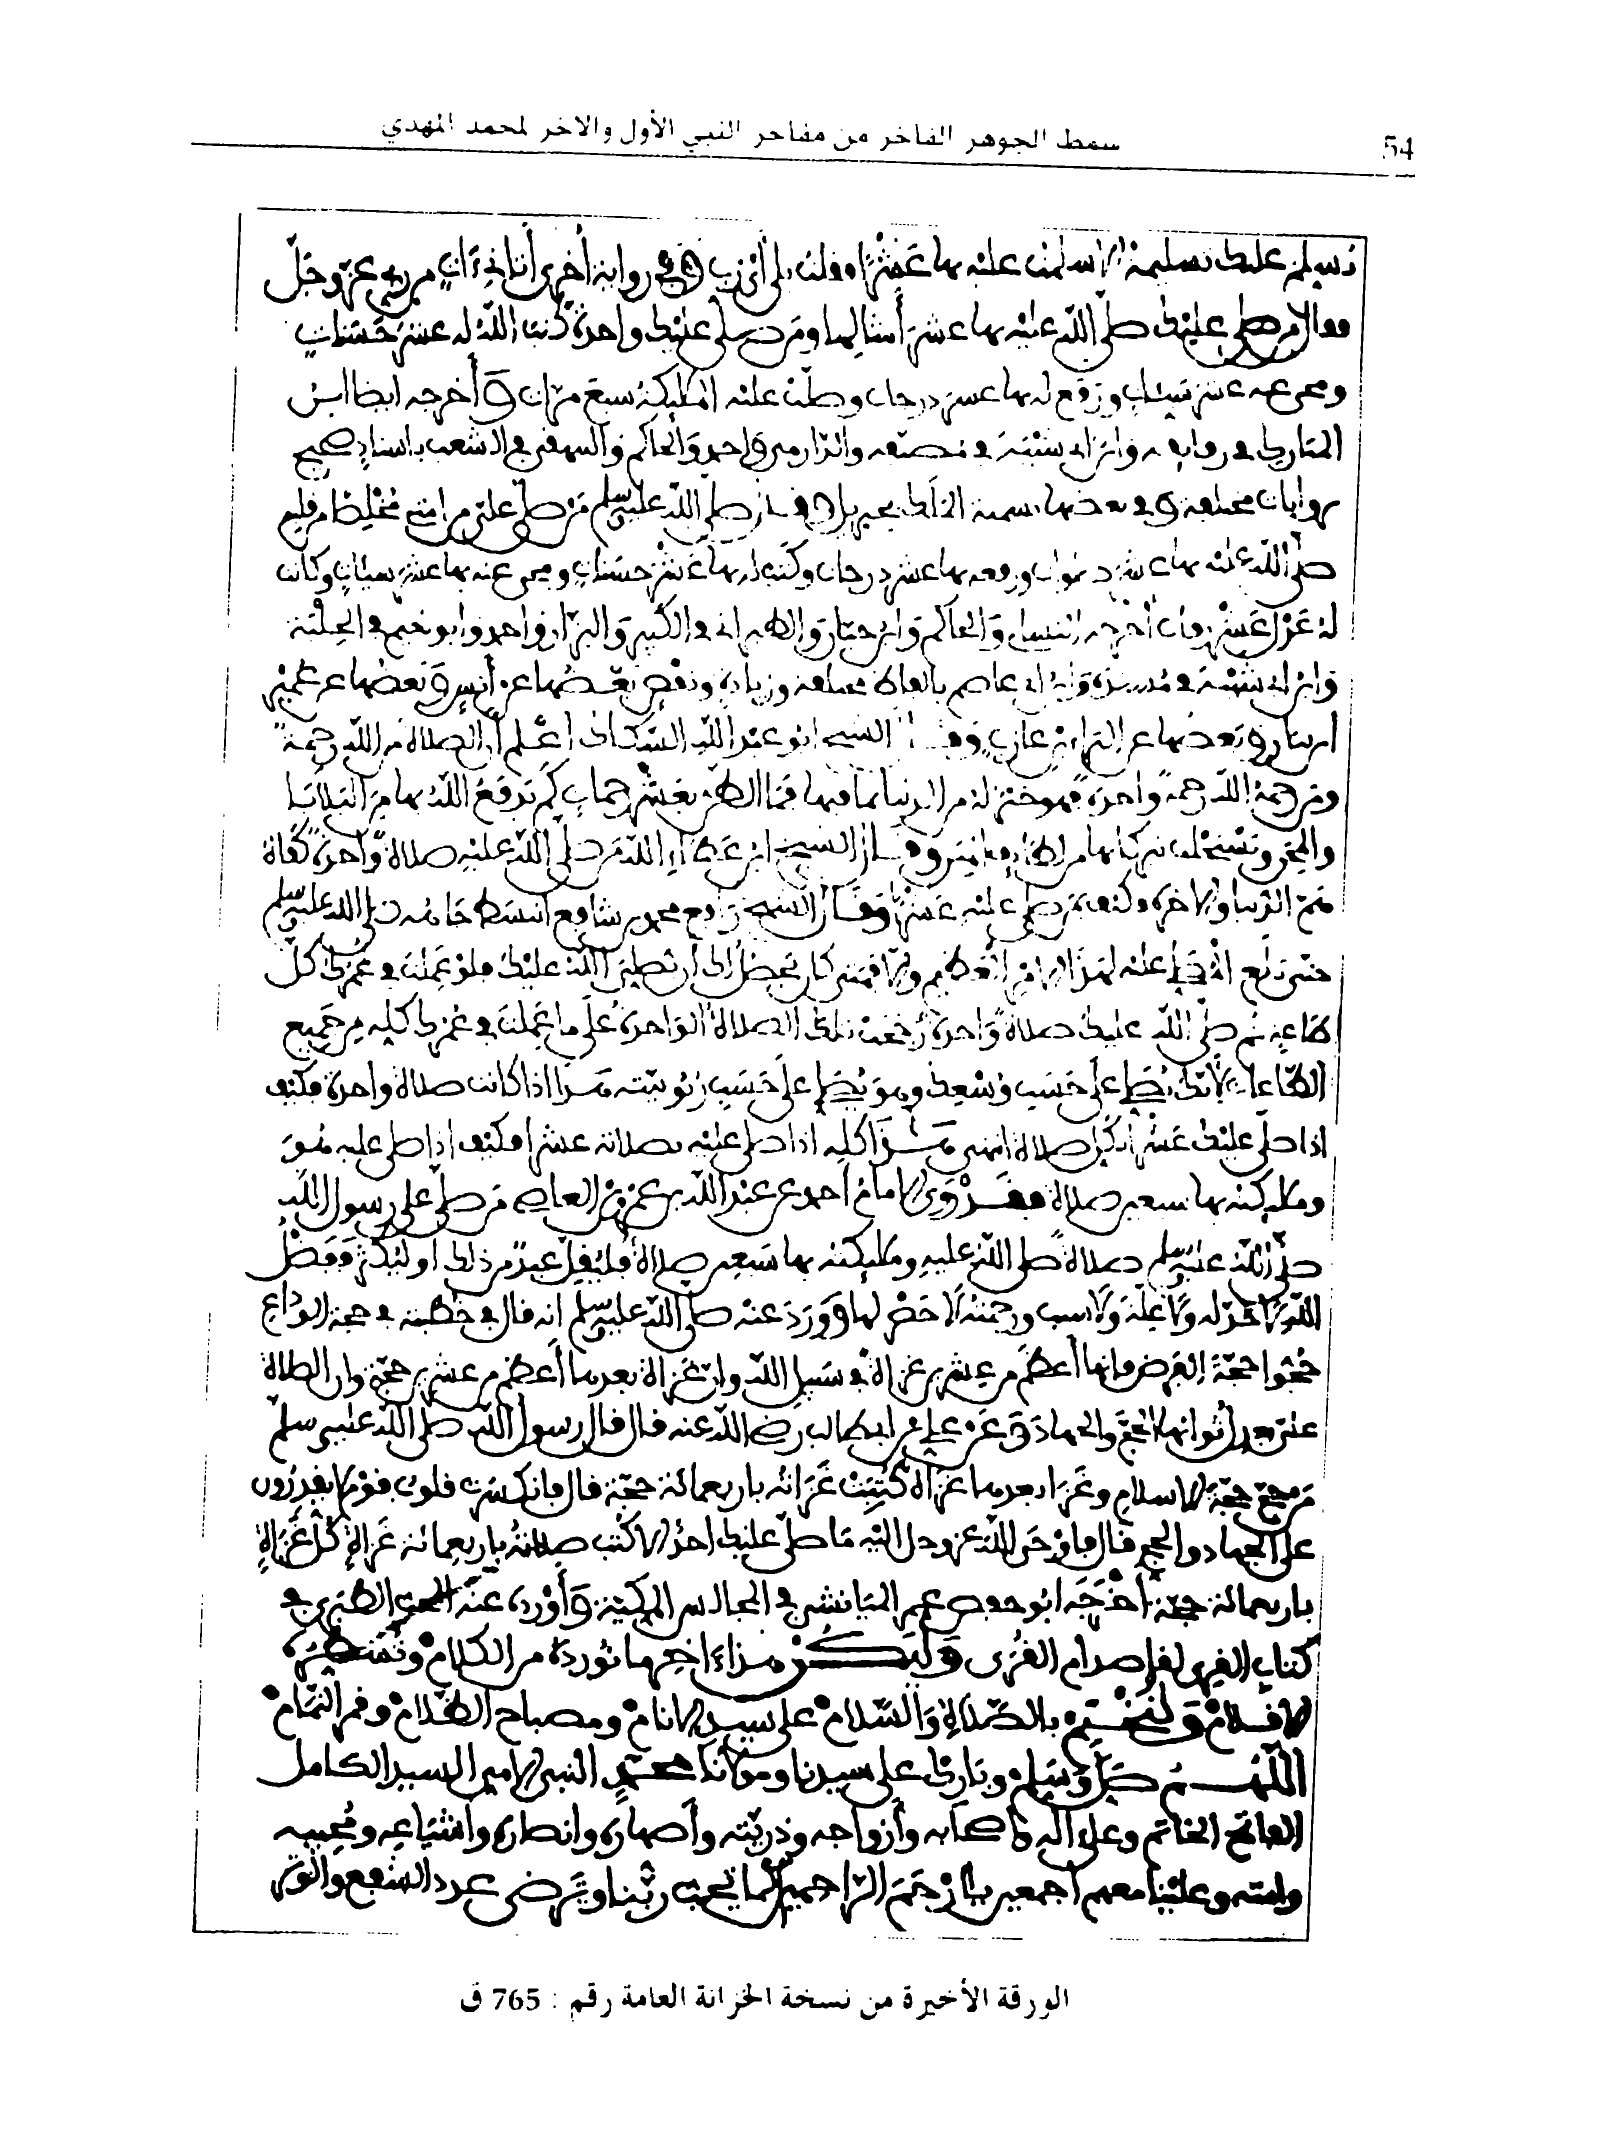 54
سمط الجوهر الفاخر من مفاخر النبي الأول والآخر لمحمد المهدي
يسلم عليك تسليمة إلا سلمت عليه بها عشرا، قلت بلى أي رب وفي رواية أخرى أتاني ءات من ربي عز وجل
فقال من صلى عليك صلى الله عليه بها عشر أمثالها ومن صلى عليك واحدة كتب الله له عشر حسنات
ومحى عنه عشر سيئات ورفع له بها عشر درجات وصلت عليه الملائكة سبع مرات وأخرجه ايضا ابن
المبارك في وابن ابي شيبة في مصنفه والدارمي واحمد والحاكم والبيهقي في الشعب باسناد صحيح
بروايات مختلفة وفي بعضها تسمية الملك بجبريل وقال صلى الله عليه وسلم من صلى علي من امتي مخلصا من قلبه
صلى الله عليه بها عشر صلوات ورفعه بها عشر درجات وكتب له بها عشر حسنات ومحى عنه بها عشر سيئات وكانت
له عدل عشر رقاب أخرجه النسائي والحاكم وابن حبان والطبراني في الكبير والبزار واحمد وابو نعيم في الحلية
وابن ابي شيبة في مسنده وابن ابي عاصم بالفاظ مختلفة وزيادة ونقص بعضها عن أنس وبعضها عن عمير
ابن نيار وبعضها عن البراء بن عازب وقال الشيخ ابو عبد الله السكاك اعلم أن الصلاة من الله رحمة
ومن رحمه الله رحمة واحدة فهو خير له من الدنيا بما فيها فما الظن بعشر رحمات كم يدفع الله بها من البلايا
والمحن ويستجلب ببركاتها من لطائف المنن وقال الشيخ ابن عطاء الله من صلى الله عليه صلاة واحدة كفاه
هم الدنيا والاخرة وكيف بمن صلى عليه عشرا وقال الشيخ ابن شافع انبسط جاهه صلى الله عليه وسلم
حتى بلغ المصلي عليه لهذا الامر العظيم والا فمتى كان يحصل لك أن يصلي الله عليك فلو عملت في عمرك كل
طاعة ثم صلى الله عليك صلاة واحدة رجحت تلك الصلاة الواحدة على ما عملت في عمرك كله من جميع
الطاعات لأنك تصلي على حسب وسعك وهو يصلي على حسب ربوبيته هذا اذا كانت صلاة واحدة فكيف
اذا صلى عليك عشرا بكل صلاة انتهى هذا كله اذا صلى عليه بصلاته عشرا فكيف اذا صلى عليه هو
وملائكته بها سبعين صلاة فقد روى الامام أحمد عن عبد الله بن عمرو بن العاص من صلى على رسول الله
صلى الله عليه وسلم صلاة صلى الله عليه وملائكته بها سبعين صلاة فليقل عبد من ذلك او ليكثر وفضل
الله لا حد له ولا علة ولا سبب ورحمته لا حصر لها وورد عنه صلى الله عليه وسلم انه قال في خطبته في حجة الوداع
حجوا حجة الفرض فانها أعظم من عشرين غزاة في سبيل الله وان غزاة بعدها أعظم من عشرين حجة وان الصلاة
علي يعدل ثوابها الحج والجهاد وعن علي بن ابي طالب رضي الله عنه قال قال رسول الله صلى الله عليه وسلم
من حج حجة الاسلام وغزا بعدها غزاة كتبت غزاته باربعمائة حجة قال فانكسرت قلوب قوم لا يقدرون
على الجهاد والحج قال فاوحى الله عز وجل اليه ما صلى عليك احد الا كتب صلاته باربعمائة غزاة كل غزاة
باربعمائة حجة أخرجه ابو حفص عمر الميانشي في المجالس المكية وأورده عنه المحب الطبري في
كتاب القرى لقاصد أم القرى وليكن هذا ءاخر ما نورده من الكلام وتنتظره
الاقلام ولنختم بالصلاة والسلام على سيد الانام ومصباح الظلام وقمر التمام
اللهم صل وسلم وبارك على سيدنا ومولانا محمد النبي الامي السيد الكامل
الفاتح الخاتم وعلى آله وأصحابه وأزواجه وذريته وأصهاره وانصاره واشياعه ومحبيه
وامته وعلينا معهم أجمعين يا أرحم الراحمين كما يحب ربنا ويرضى عدد الشفع والوتر
الورقة الأخيرة من نسخة الخزانة العامة رقم : 765 ق